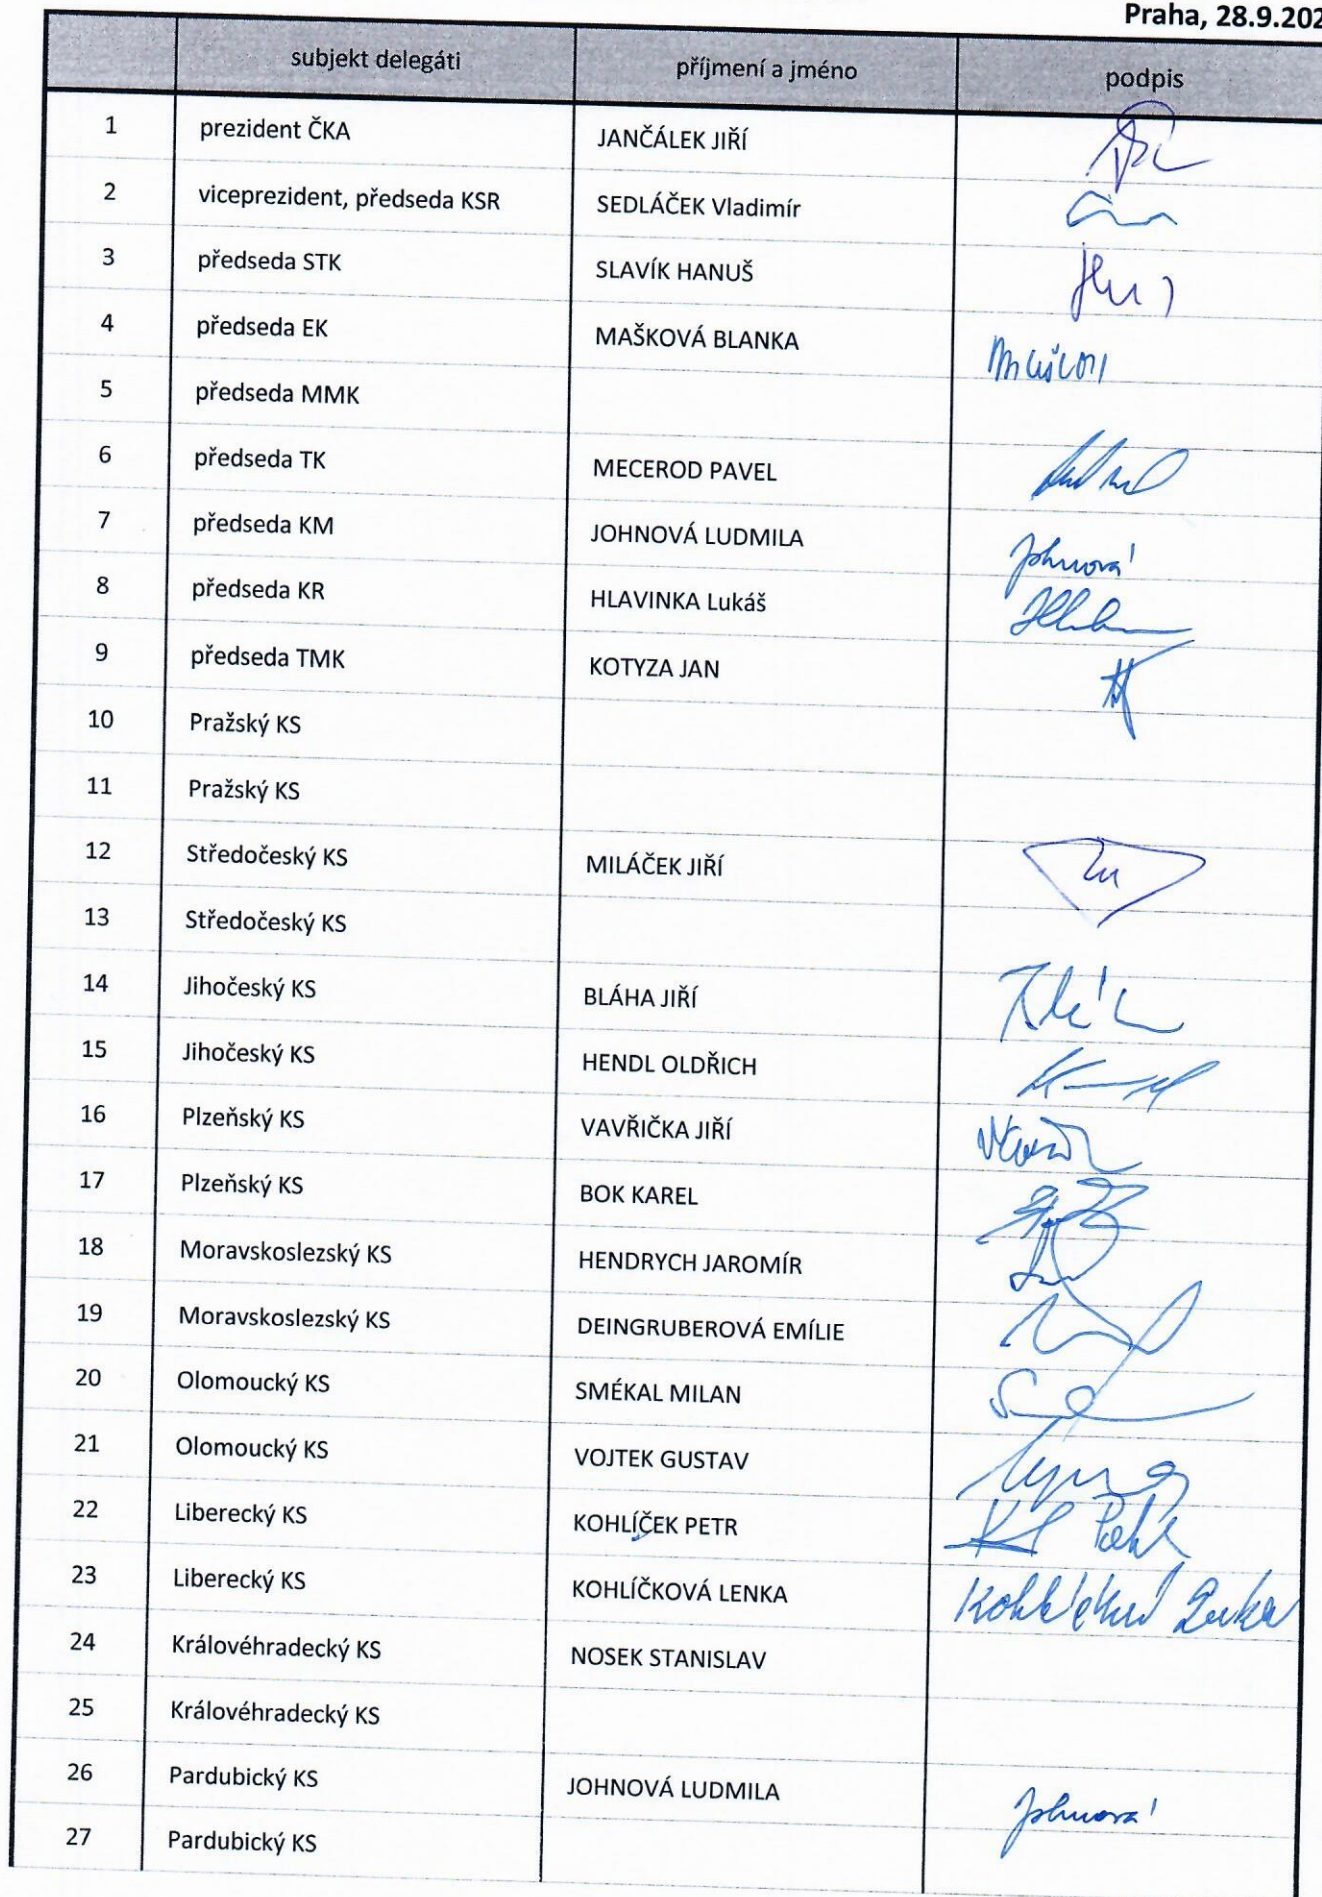 Praha, 28.9.202
subjekt delegáti příjmení a jméno podpis
1 prezident ČKA JANČÁLEK JIŘÍ
2 viceprezident, předseda KSR SEDLÁČEK Vladimír
3 předseda STK SLAVÍK HANUŠ
4 předseda EK MAŠKOVÁ BLANKA
5 předseda MMK
6 předseda TK MECEROD PAVEL
7 předseda KM JOHNOVÁ LUDMILA Johnová
8 předseda KR HLAVINKA Lukáš
9 předseda TMK KOTYZA JAN
10 Pražský KS
11 Pražský KS
12 Středočeský KS MILÁČEK JIŘÍ
13 Středočeský KS
14 Jihočeský KS BLÁHA JIŘÍ
15 Jihočeský KS HENDL OLDŘICH
16 Plzeňský KS VAVŘIČKA JIŘÍ
17 Plzeňský KS BOK KAREL
18 Moravskoslezský KS HENDRYCH JAROMÍR
19 Moravskoslezský KS DEINGRUBEROVÁ EMÍLIE
20 Olomoucký KS SMÉKAL MILAN
21 Olomoucký KS VOJTEK GUSTAV
22 Liberecký KS KOHLÍČEK PETR
23 Liberecký KS KOHLÍČKOVÁ LENKA Kohlíčková Lenka
24 Královéhradecký KS NOSEK STANISLAV
25 Královéhradecký KS
26 Pardubický KS JOHNOVÁ LUDMILA Johnová
27 Pardubický KS